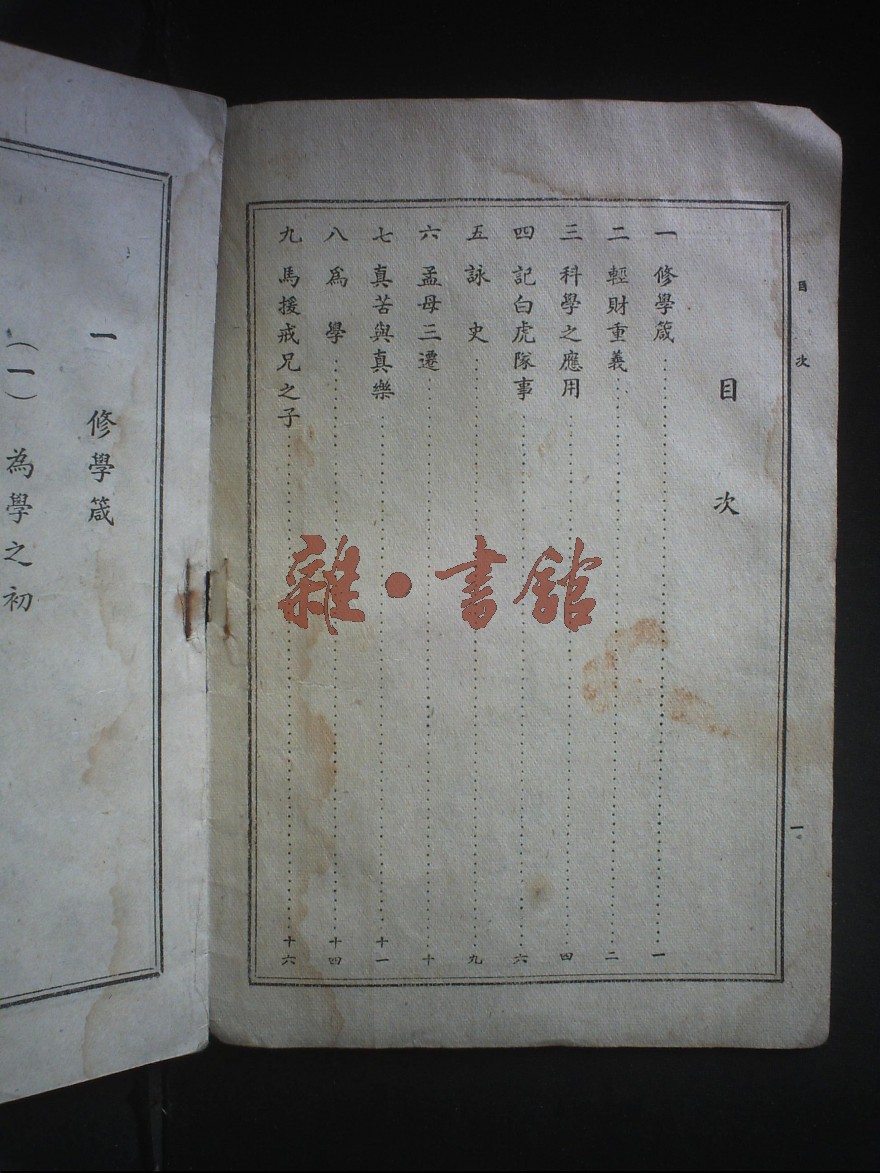 目次
一
目次
一 修學箴 一
二 輕財重義 二
三 科學之應用 四
四 記白虎隊事 六
五 詠史 九
六 孟母三遷 十
七 真苦與真樂 十一
八 爲學 十四
九 馬援戒兄之子 十六
一 修學箴
（一） 為學之初
雜·書館